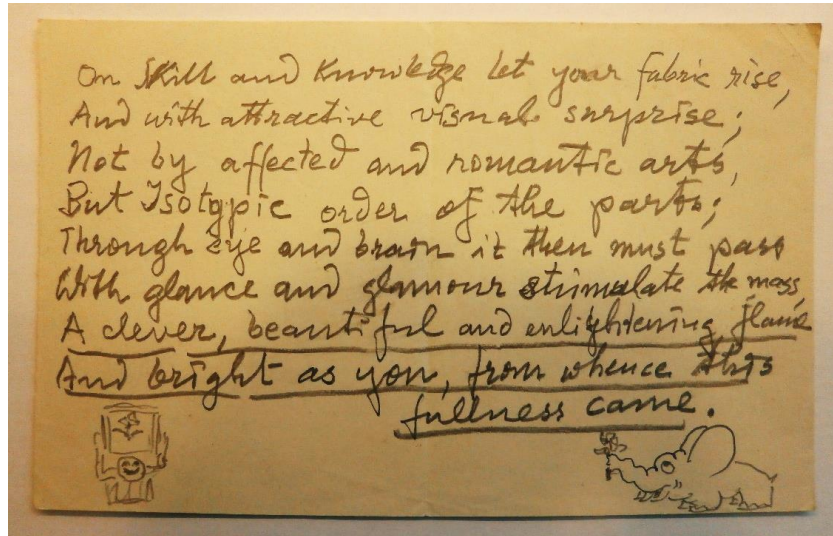 On Skill and Knowledge let your fabric rise,
And with attractive visual surprise;
Not by affected and romantic arts,
But Isotypic order of the parts;
Through eye and brain it then must pass
With glance and glamour stimulate the mass,
A clever, beautiful and enlightening flame
And bright as you, from whence this
fullness came.